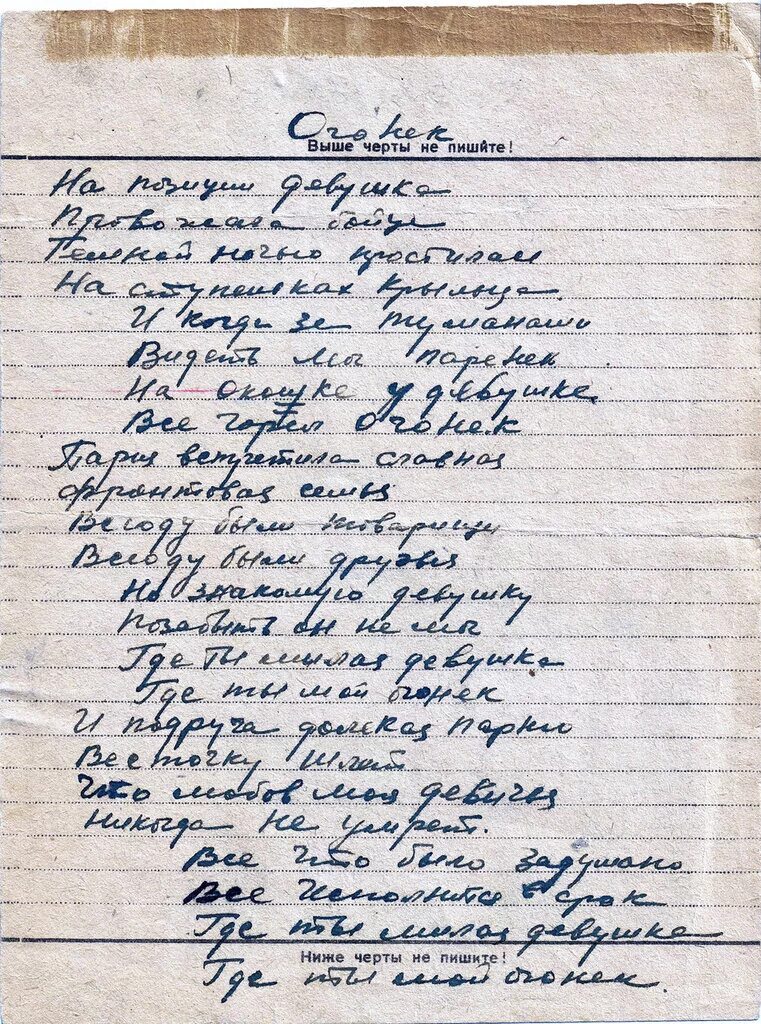 Огонек
Выше черты не пишите!
На позиции девушка
Провожала бойца
Темной ночью простилась
На ступеньках крыльца.
И когда за туманами
Видеть мог паренек
На окошке у девушке
Все горел Огонек
Парня встретила славная
фронтовая семья
Всюду были товарищи
Всюду были друзья
Но знакомую девушку
Позабыть он не мог
Где ты милая девушка
Где ты мой огонек
И подруга далекая парню
Весточку шлет
Что любов моя девичья
никогда не умрет.
Все что было задумано
Все исполнится в срок
Где ты милая девушка
Ниже черты не пишите!
Где ты мой огонек.